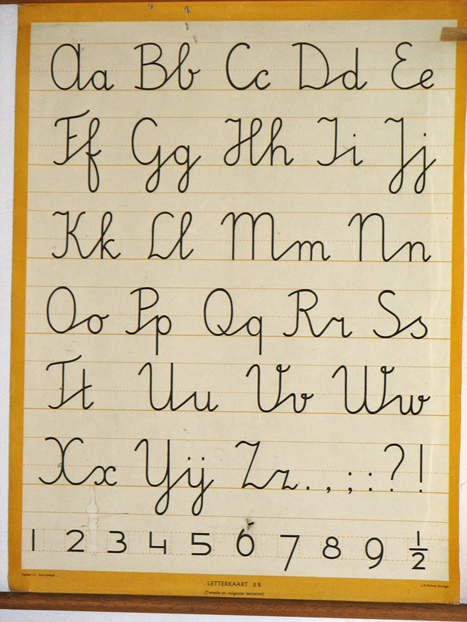 Aa Bb Cc Dd Ee
Ff Gg Hh Ii Jj
Kk Ll Mm Nn
Oo Pp Qq Rr Ss
Tt Uu Vv Ww
Xx Yij Zz . , ; : ? !
1 2 3 4 5 6 7 8 9 ½
LETTERKAART II R
(Tweede en volgende leerjaren)